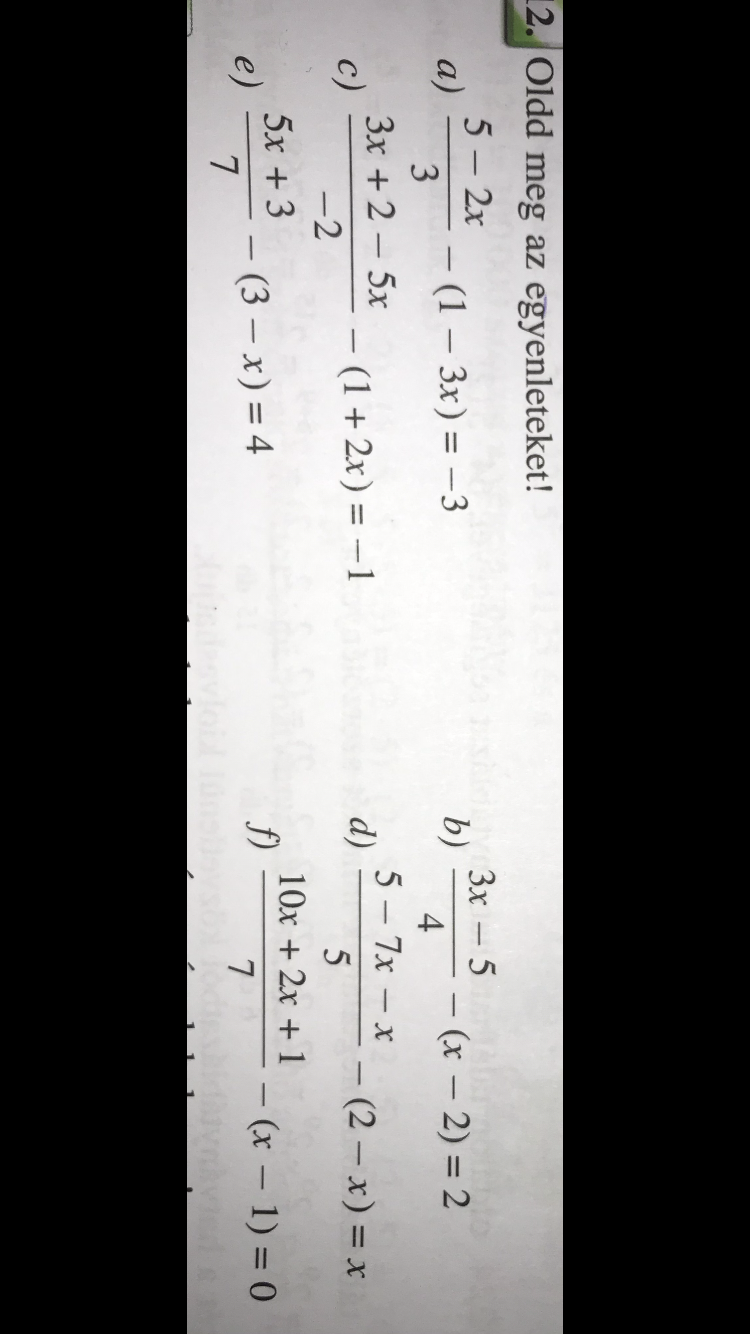 12. Oldd meg az egyenleteket!
a) (5 − 2x)/3 − (1 − 3x) = −3
b) (3x − 5)/4 − (x − 2) = 2
c) (3x + 2 − 5x)/−2 − (1 + 2x) = −1
d) (5 − 7x − x)/5 − (2 − x) = x
e) (5x + 3)/7 − (3 − x) = 4
f) (10x + 2x + 1)/7 − (x − 1) = 0